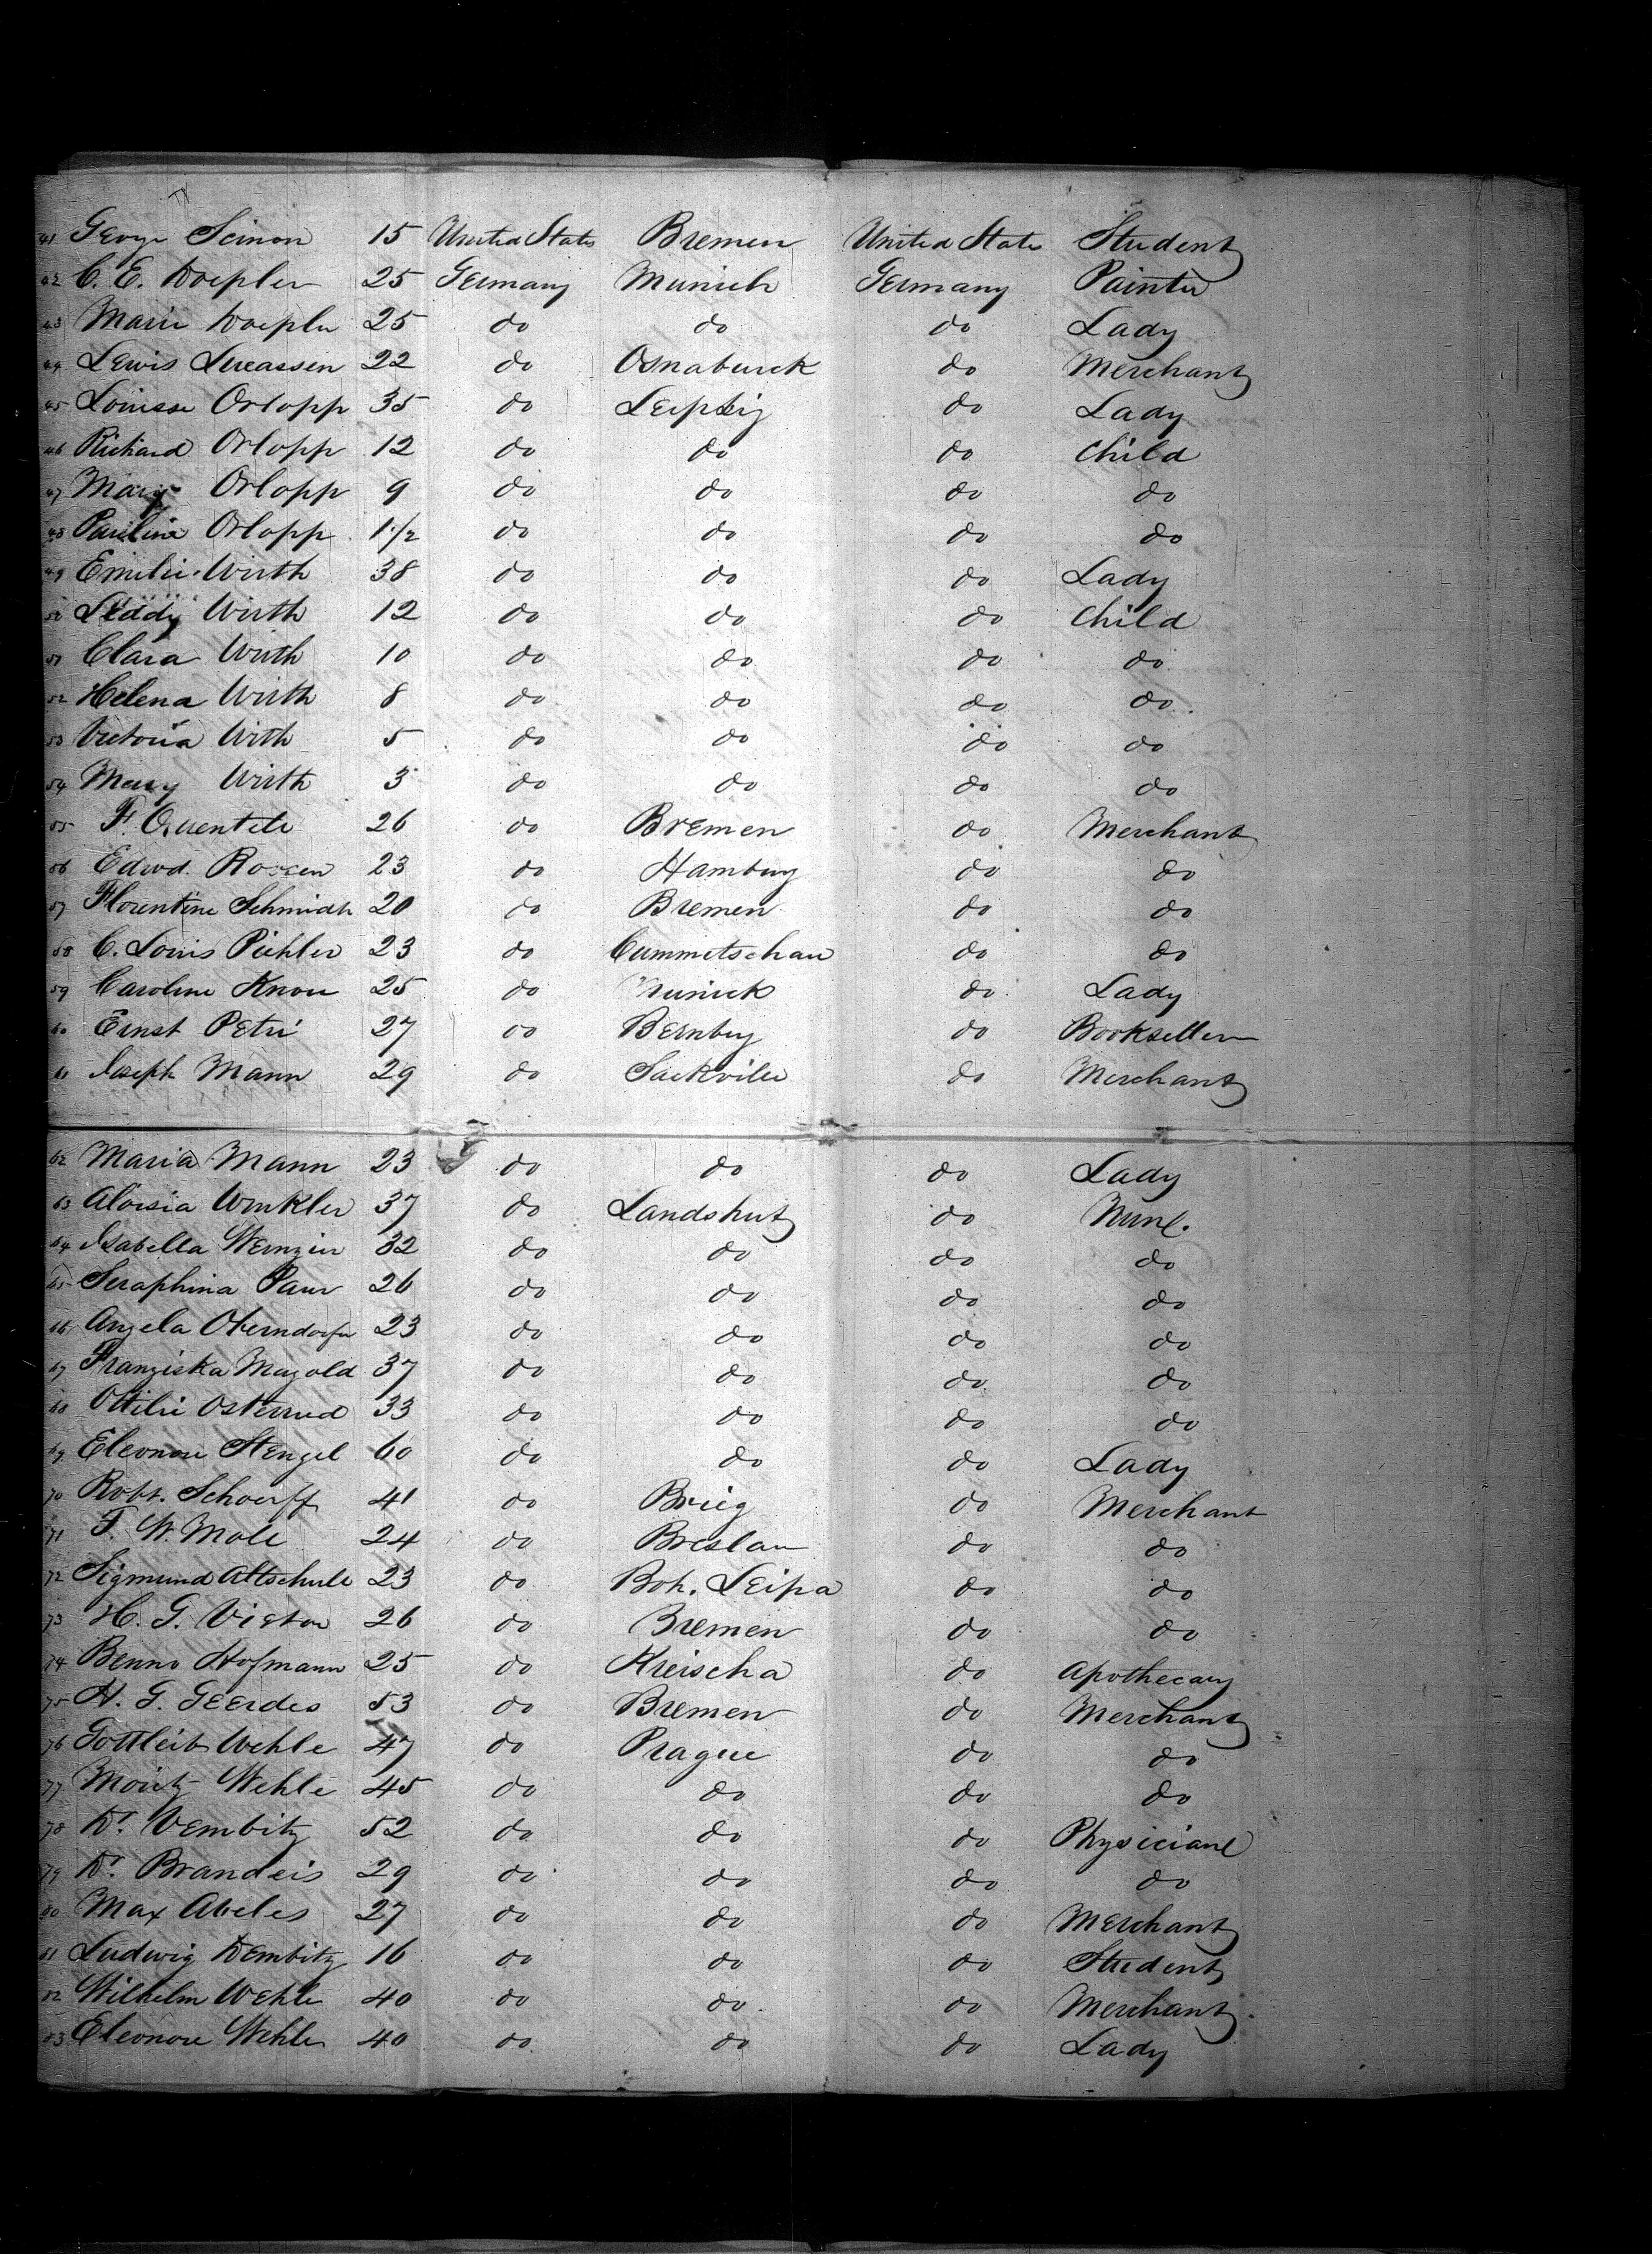 41 George Seinon 15 United States Bremen United States Student
42 C. E. Doepler 25 Germany Munich Germany Painter
43 Marie Doepler 25 do do do Lady
44 Lewis Lucassen 22 do Osnaburck do Merchant
45 Louisse Orlopp 35 do Leipzig do Lady
46 Richard Orlopp 12 do do do Child
47 Mary Orlopp 9 do do do do
48 Pauline Orlopp 1 1/2 do do do do
49 Emilie Wirth 38 do do do Lady
50 Leddy Wirth 12 do do do Child
51 Clara Wirth 10 do do do do
52 Helena Wirth 8 do do do do
53 Victoria Wirth 5 do do do do
54 Mary Wirth 3 do do do do
55 F. Quentele 26 do Bremen do Merchant
56 Edwd. Rossen 23 do Hamburg do do
57 Florentine Schmidt 20 do Bremen do do
58 C. Louis Pichler 23 do Cummetschau do do
59 Caroline Knou 25 do Munick do Lady
60 Ernst Petri 27 do Bernburg do Bookseller
61 Joseph Mann 29 do Sackville do Merchant
62 Maria Mann 23 do do do Lady
63 Aloisia Winkler 37 do Landshut do Nune.
64 Isabella Wenzin 32 do do do do
65 Seraphina Paur 26 do do do do
66 Angela Oberndorfer 23 do do do do
67 Franziska Mazold 37 do do do do
68 Ottilie Osterried 33 do do do do
69 Eleonore Stengel 60 do do do Lady
70 Robt. Schoerff 41 do Brieg do Merchant
71 F. W. Mole 24 do Breslau do do
72 Sigmund Altschule 23 do Boh. Leipa do do
73 H. G. Vietor 26 do Bremen do do
74 Benno Hofmann 25 do Kreischa do Apothecary
75 H. G. Geerdes 53 do Bremen do Merchant
76 Gottleib Wehle 47 do Prague do do
77 Moritz Wehle 45 do do do do
78 Dr. Dembitz 52 do do do Physician
79 Dr. Brandeis 29 do do do do
80 Max Abeles 27 do do do Merchant
81 Ludwig Dembitz 16 do do do Student
82 Wilhelm Wehle 40 do do do Merchant
83 Eleonore Wehle 40 do do do Lady